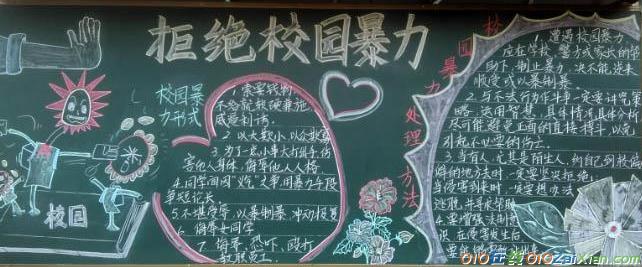 拒绝校园暴力
校园暴
力形式
1.索要钱物,
不给就软硬兼施
威逼利诱.
2.以大欺小,以众欺寡
3.为了一点小事大打出手,伤
害他人身体,侮辱他人人格
4.同学间因"义气"之争用暴力手段
争短论长.
5.不堪受辱,以暴制暴,冲动报复
6.侮辱女同学
7.侮辱、恐吓、殴打
教职员工.
校园
校园暴力处理方法
1.遭遇校园暴力
应在学校、警方或家长的帮
助下,制止暴力,决不能逆来
顺受或以暴制暴
2.与不法行为作斗争一定要讲究策
略,运用智慧,具体情况具体分析
尽可能避免正面的直接搏斗,以免
引起不必要的伤亡.
3.当有人,尤其是陌生人,约自己到
的地方时,一定要坚决拒绝;
当侵害到来时,一定要想办法
逃脱,并寻求帮助
4.要增强法制意
识,在侵害发生
010在线 010zaixian.com